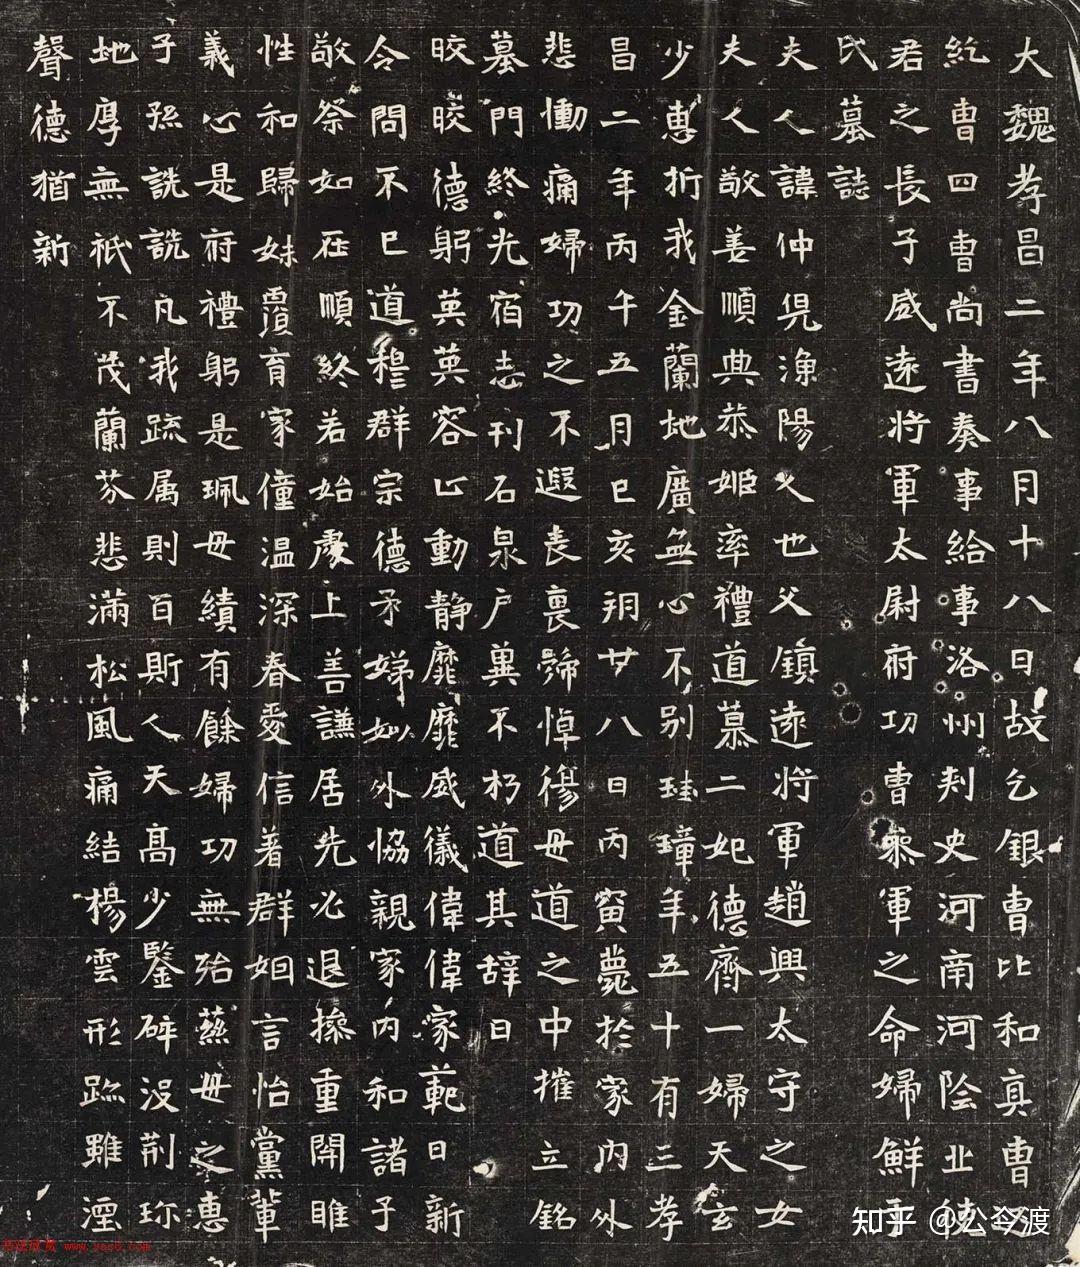 大魏孝昌二年八月十八日故乞銀曹比和真曹
紇曹四曹尚書奏事給事洛州刾史河南河陰北
君之長子威遠將軍太尉府功曹叅軍之命婦鮮于
氏墓誌
夫人諱仲兒漁陽人也父鎮遠將軍趙興太守之女
夫人敬善順典恭姬率禮道慕二妃德齊一婦天玄
少惠折我金蘭地廣無心不別珪璋年五十有三孝
昌二年丙午五月己亥朔廿八日丙寅薨於家內外
悲慟痛婦功之不遐喪哀號悼傷母道之中摧立銘
墓門終光宿志刊石泉户冀不朽道其辞曰
皎皎德躬英英容止動靜靡靡威儀偉偉家範日新
令問不已道穆群宗德矛娣姒外恊親家內和諸子
敬祭如在順終若始處上善謙居先必退撡重開睢
性和歸妹覆育家僮温深春愛信著群姻言怡黨輩
義心是府禮躬是珮母績有餘婦功無殆慈母之惠
子孫詵詵凡我疏属則百斯人天髙少鑒碎没荆珎
地厚無祇不茂蘭芬悲滿松風痛結楊雲形雖湮
聲德猶新
知乎 @公今渡
www.yac8.com